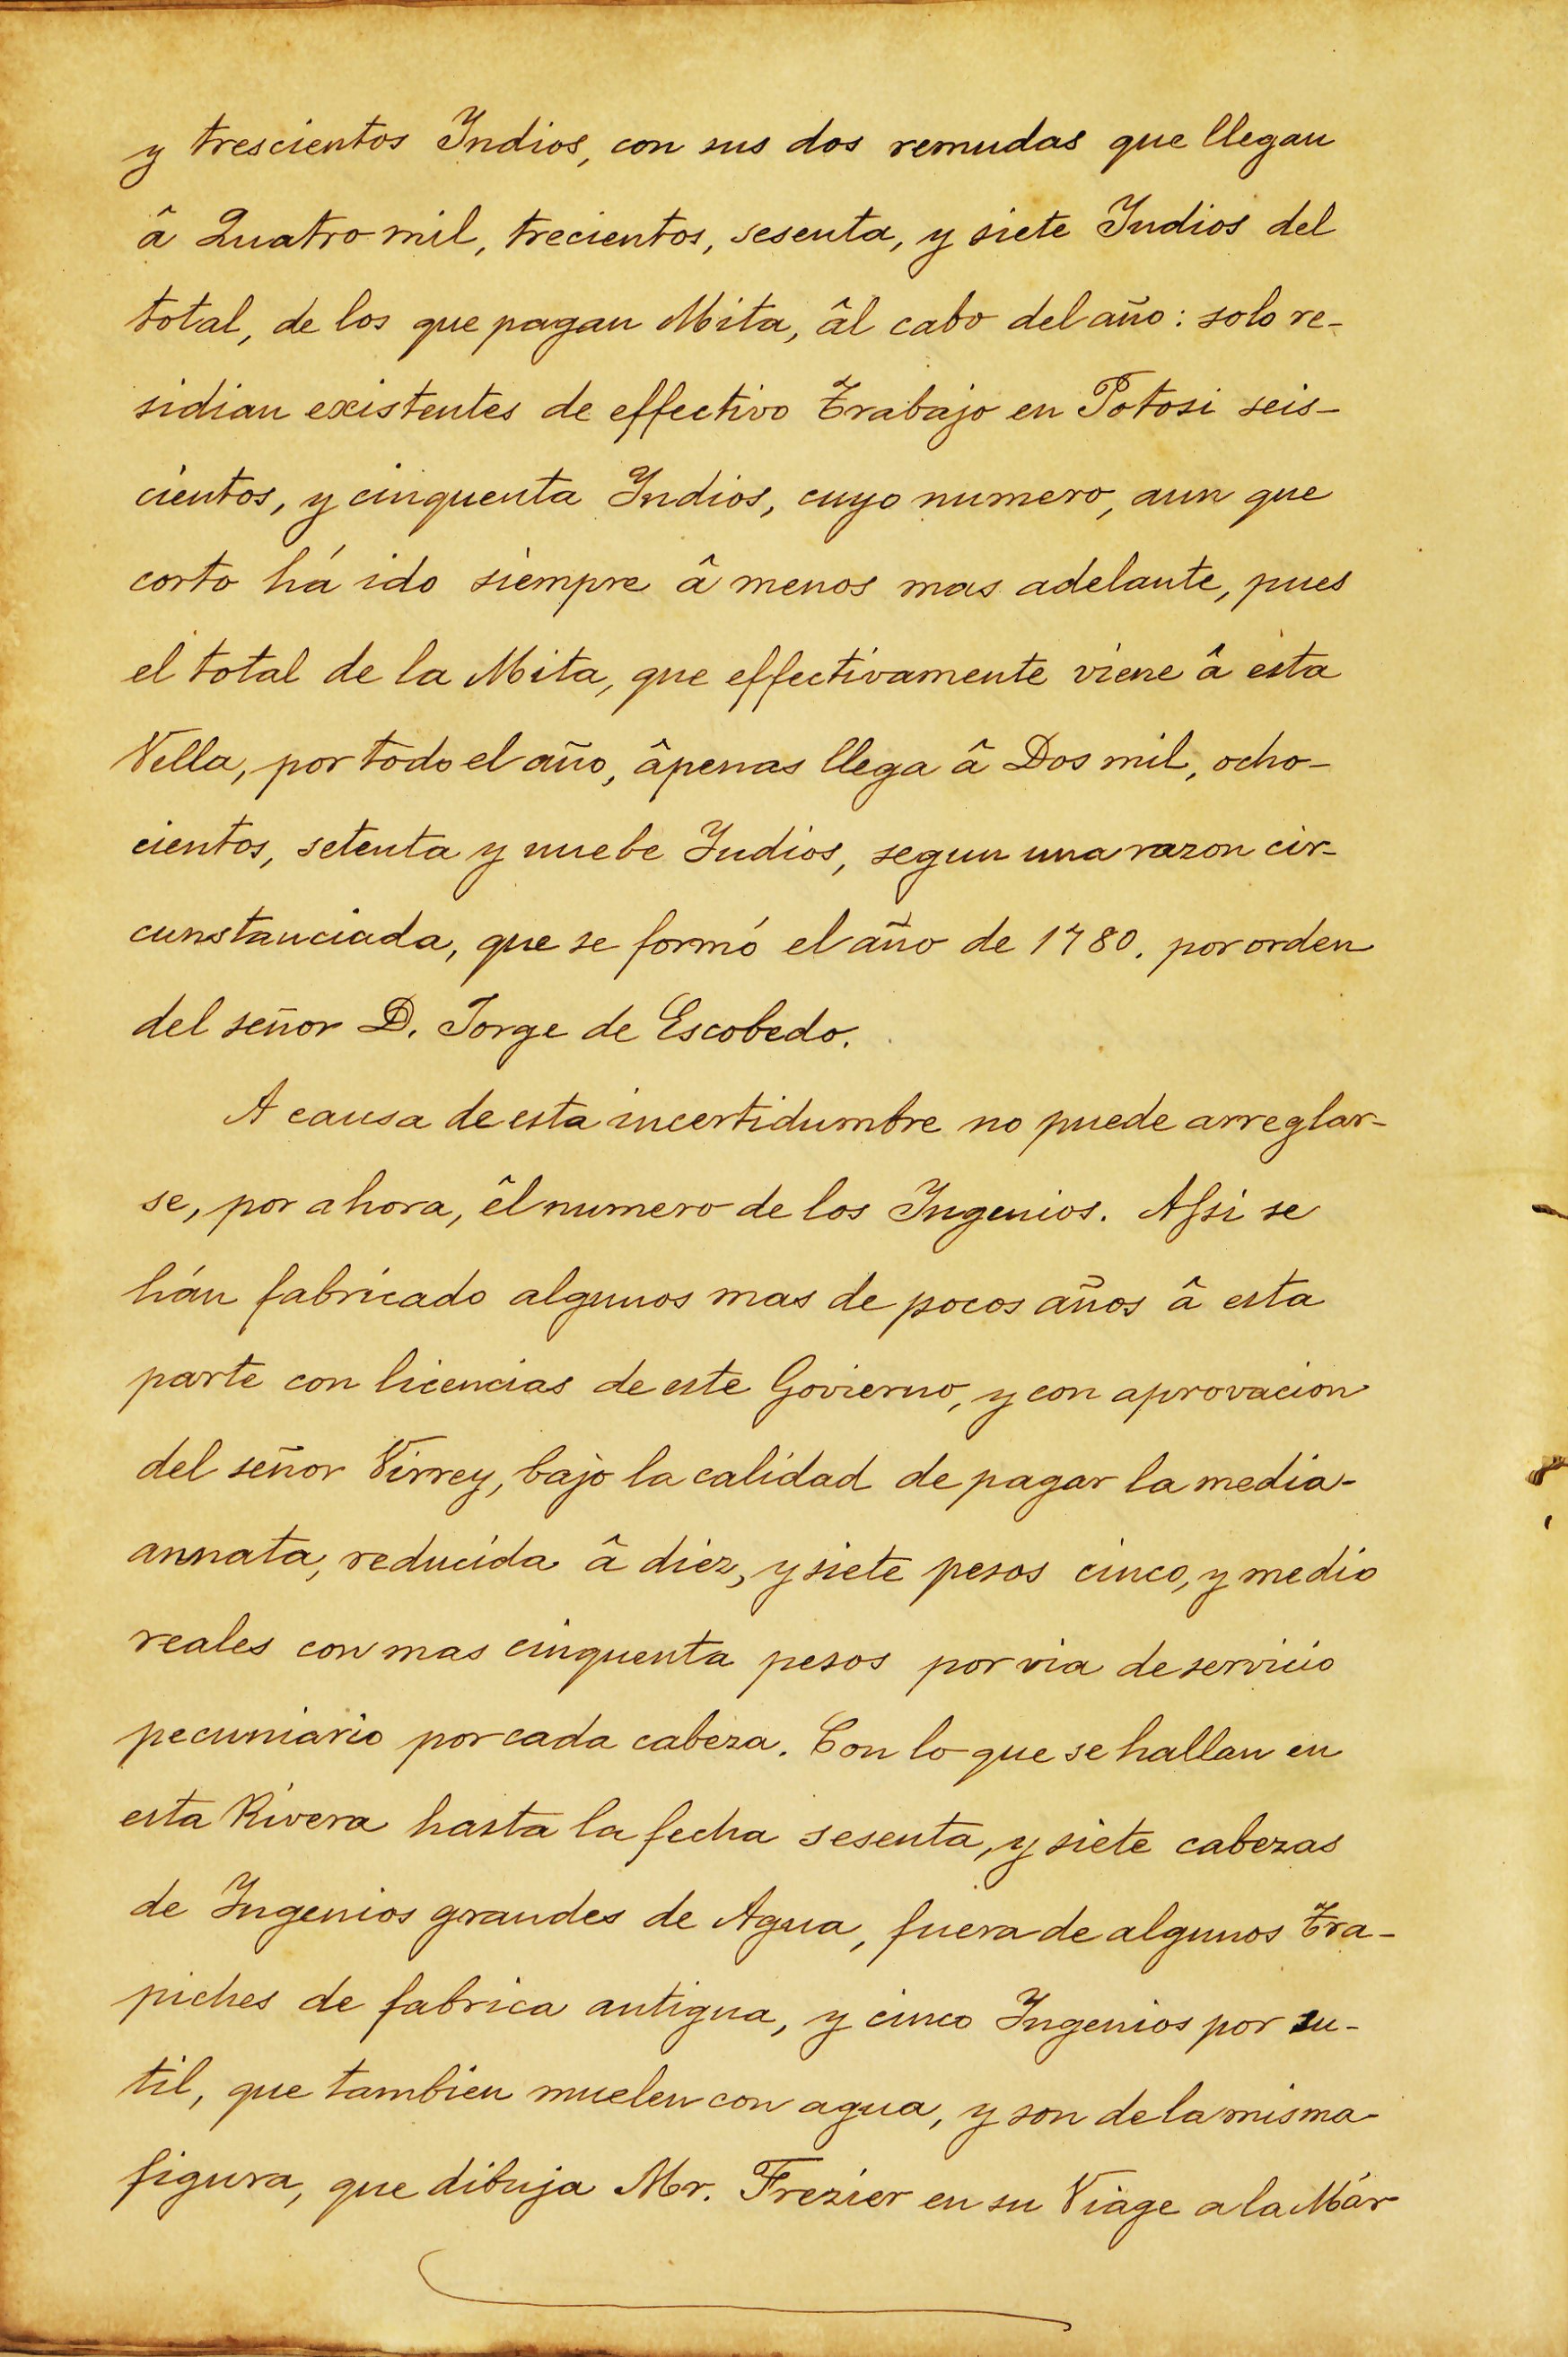 y trescientos Indios, con sus dos remudas que llegan
â Quatro mil, trecientos, sesenta, y siete Indios del
total, de los que pagan Mita, âl cabo del año: solo re-
sidian existentes de effectivo Trabajo en Potosi seis-
cientos, y cinquenta Indios, cuyo numero, aun que
corto há ido siempre â menos mas adelante, pues
el total de la Mita, que effectivamente viene â esta
Villa, por todo el año, âpenas llega â Dos mil, ocho-
cientos, setenta y nuebe Indios, segun una razon cir-
cunstanciada, que se formó el año de 1780. por orden
del señor D. Jorge de Escobedo.
A causa de esta incertidumbre no puede arreglar-
se, por ahora, êl numero de los Ingenios. Assi se
hán fabricado algunos mas de pocos años â esta
parte con licencias de este Govierno, y con aprovacion
del señor Virrey, bajo la calidad de pagar la media-
annata, reducida â diez, y siete pesos cinco, y medio
reales con mas cinquenta pesos por via de servicio
pecuniario por cada cabeza. Con lo que se hallan en
esta Rivera hasta la fecha sesenta, y siete cabezas
de Ingenios grandes de Agua, fuera de algunos Tra-
piches de fabrica antigua, y cinco Ingenios por su-
til, que tambien muelen con agua, y son de la misma
figura, que dibuja Mr. Frezier en su Viage a la Már